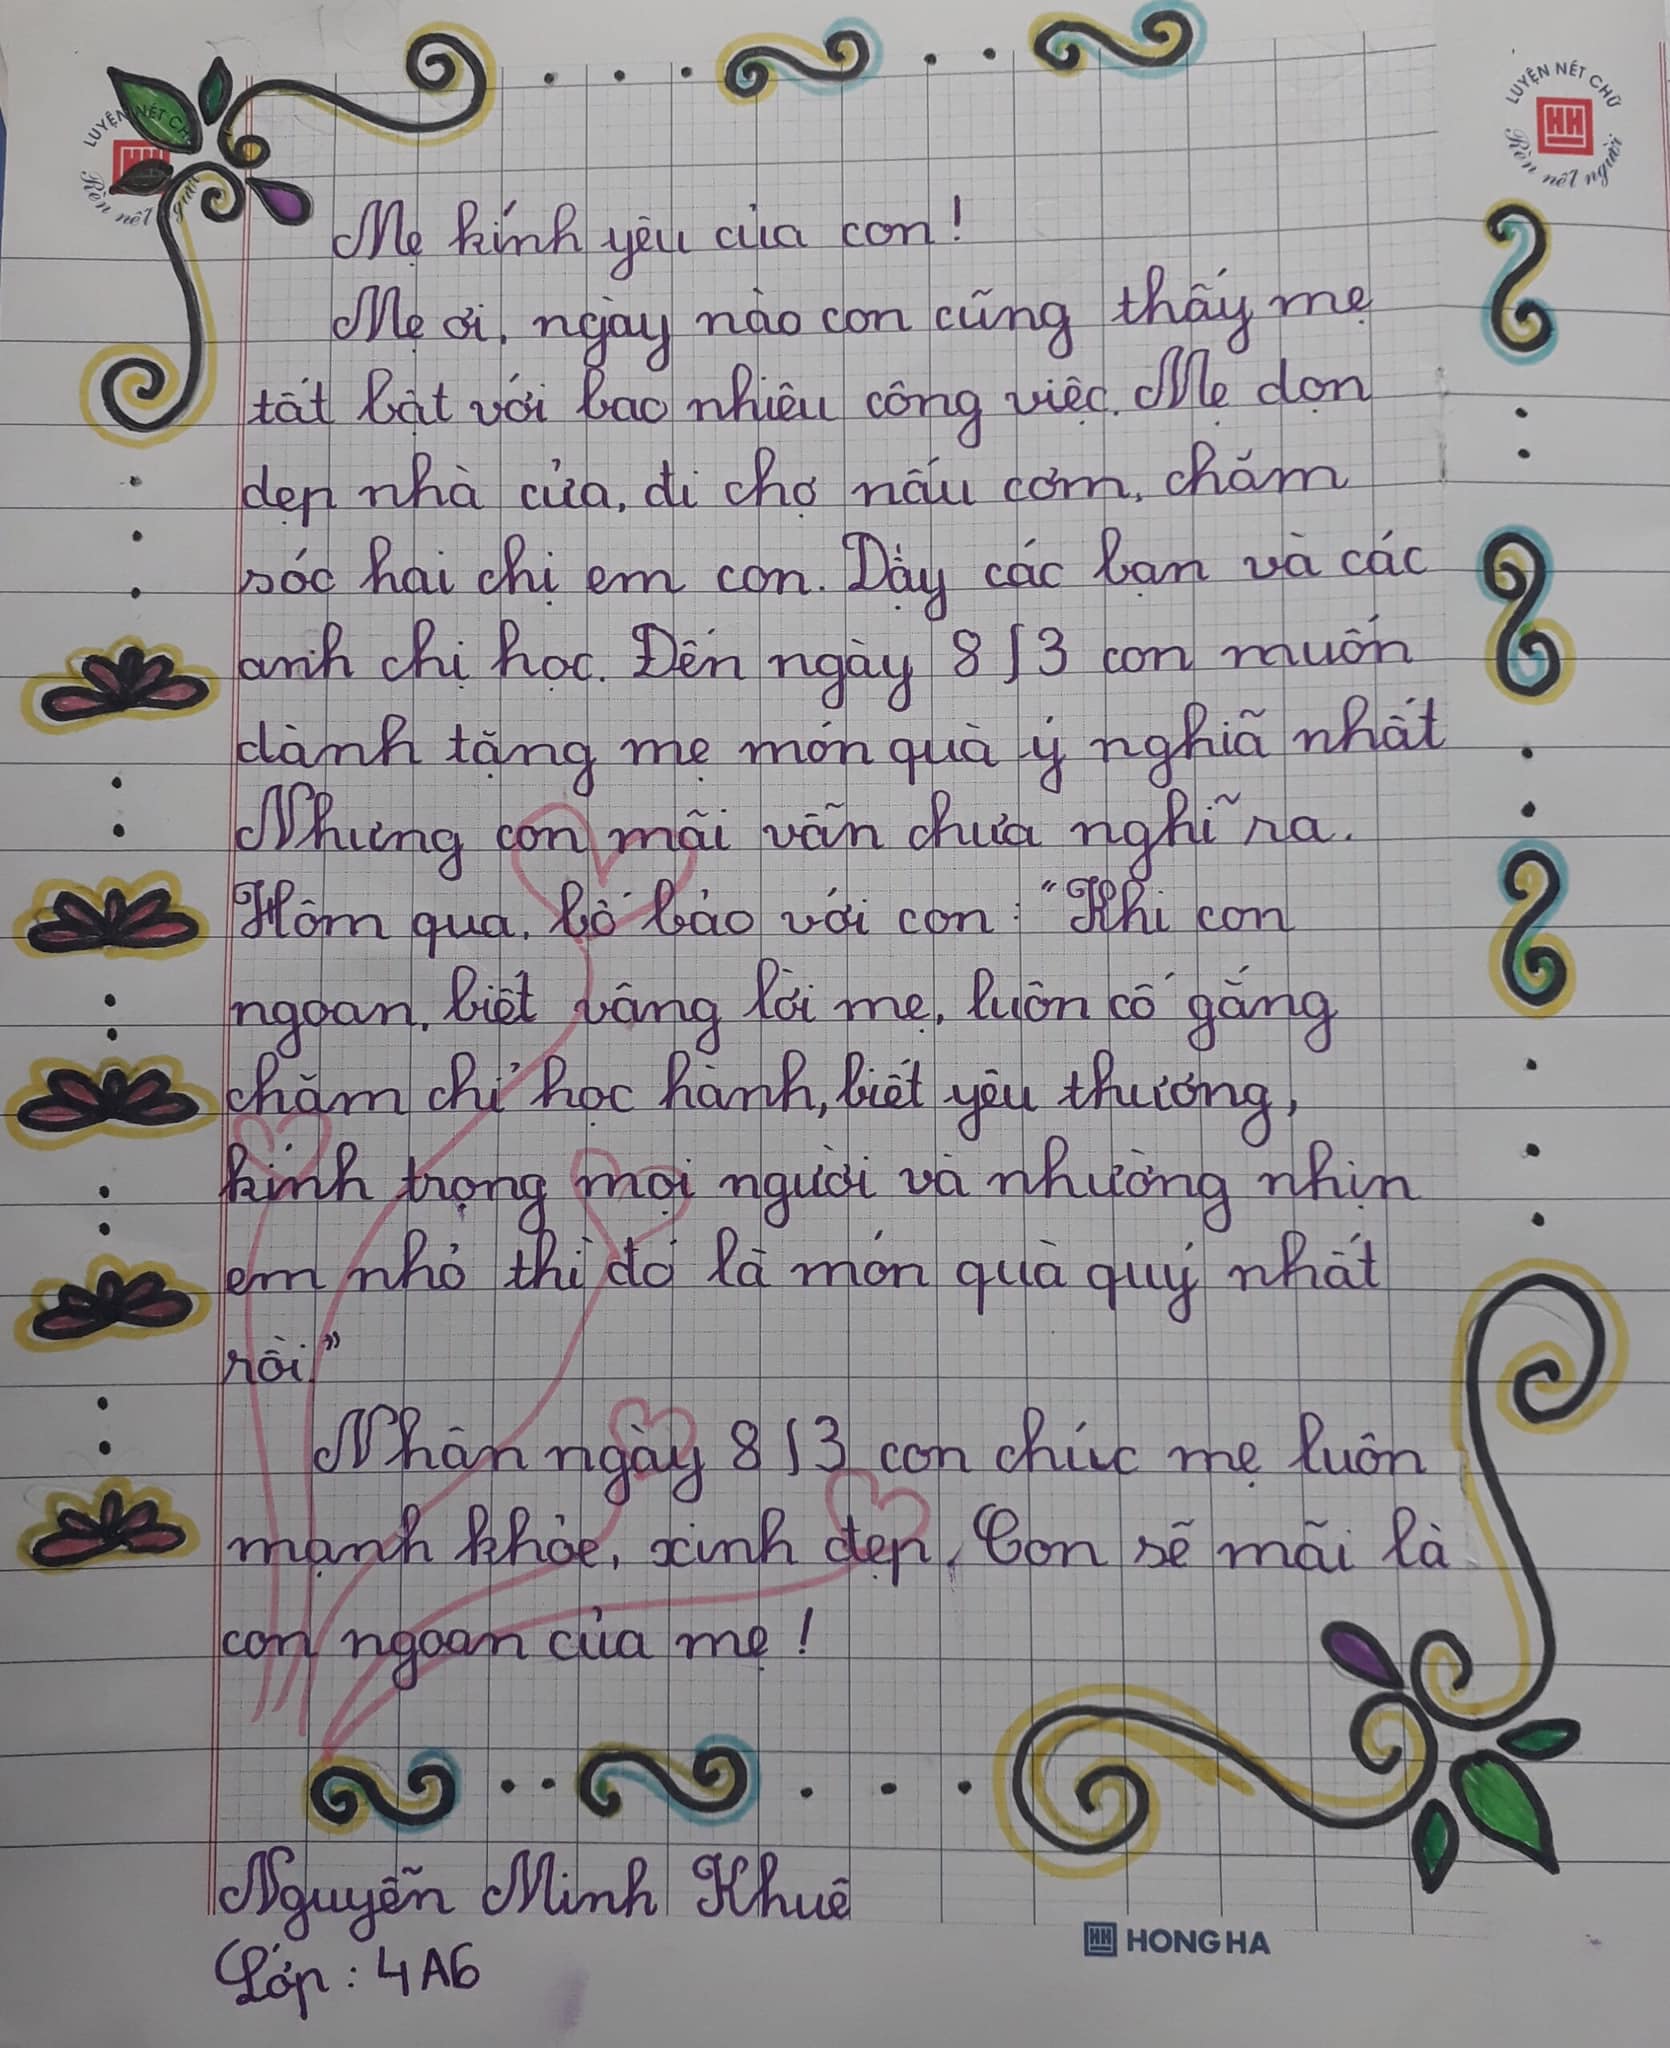 LUYỆN NÉT CH
Rèn nết người
LUYỆN NÉT CHỮ
HH
Rèn nết người
Mẹ kính yêu của con!
Mẹ ơi, ngày nào con cũng thấy mẹ
tất bật với bao nhiêu công việc. Mẹ dọn
dẹp nhà cửa, đi chợ nấu cơm, chăm
sóc hai chị em con. Dạy các bạn và các
anh chị học. Đến ngày 8/3 con muốn
dành tặng mẹ món quà ý nghĩã nhất
Nhưng con mãi vẫn chưa nghĩ ra.
Hôm qua, bố bảo với con: "Khi con
ngoan, biết vâng lời mẹ, luôn cố gắng
chăm chỉ học hành, biết yêu thương,
kính trọng mọi người và nhường nhịn
em nhỏ thì đó là món quà quý nhất
rồi."
Nhân ngày 8/3 con chúc mẹ luôn
mạnh khỏe, xinh đẹp. Con sẽ mãi là
con ngoan của mẹ!
Nguyễn Minh Khuê
HH HONG HA
Lớp: 4A6